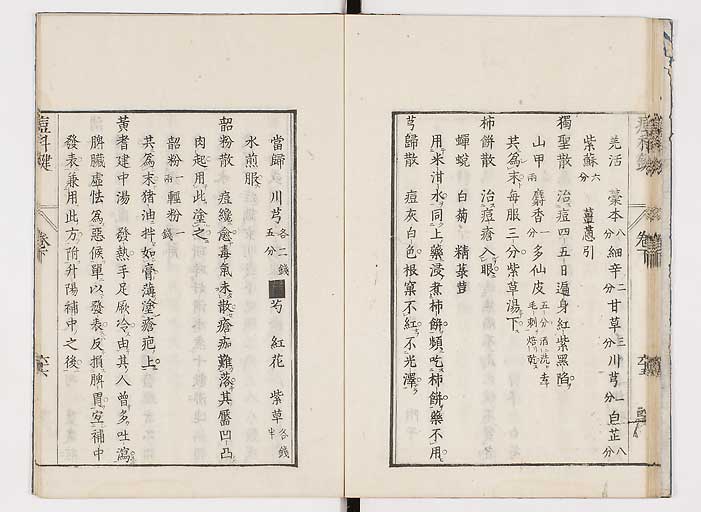 羌活 藁本八分 細辛二分 甘草三分 川芎一分 白芷八分
紫蘇六分 薑蔥引
獨聖散 治痘四五日遍身紅紫黑陷
山甲一兩 麝香一分 多仙皮五分酒洗去毛刺焙乾
共為末每服三分紫草湯下
柿餅散 治痘瘡入眼
蟬蛻 白菊 精䒷
用米泔水同上藥浸煮柿餅頻吃柿餅藥不用
芎歸散 痘灰白色根窠不紅不光澤
當歸 川芎各二錢五分 芍 紅花 紫草各錢半
水煎服
韶粉散 痘纔愈毒氣未散瘡痂難落其靨凹凸
肉起用此塗之
韶粉一兩 輕粉一錢
共為末猪油拌如膏薄塗瘡疤上
黃耆建中湯 發熱手足厥冷由其人曾多吐瀉
脾臟虛怯為惡候單以發表反損脾胃宜補中
發表兼用此方附升陽補中之後
痘科鍵 卷下